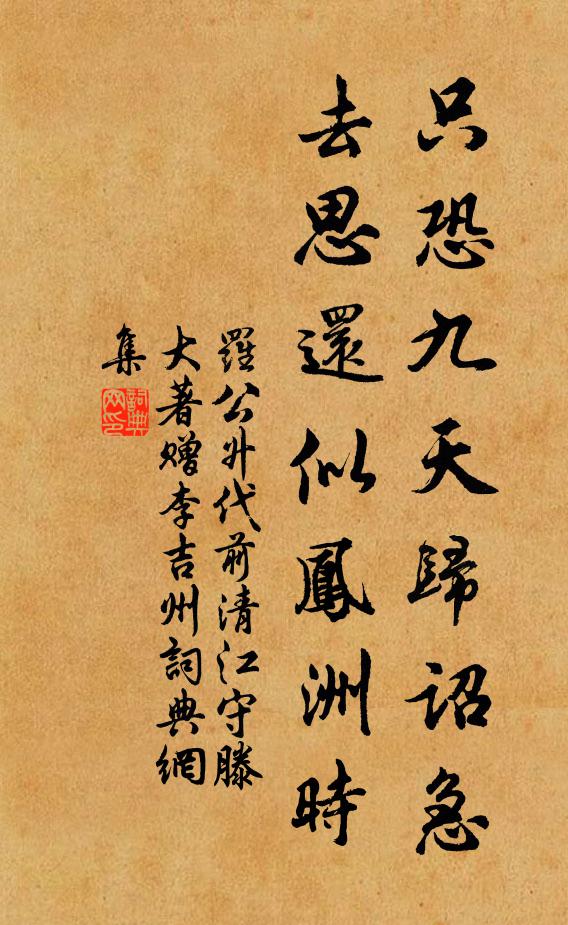 只恐九天歸詔急
去思還似鳳洲時
羅公升代前清江守滕
大著贈李吉州詞典網
集
詞典
网印